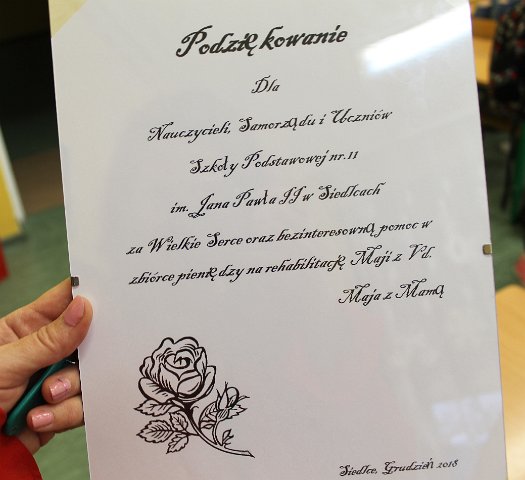 Podziękowanie
Dla
Nauczycieli, Samorządu i Uczniów
Szkoły Podstawowej nr.11
im. Jana Pawła II w Siedlcach
za Wielkie Serce oraz bezinteresowną pomoc w
zbiórce pieniędzy na rehabilitację Maji z Vd.
Maja z Mamą
Siedlce, Grudzień 2018